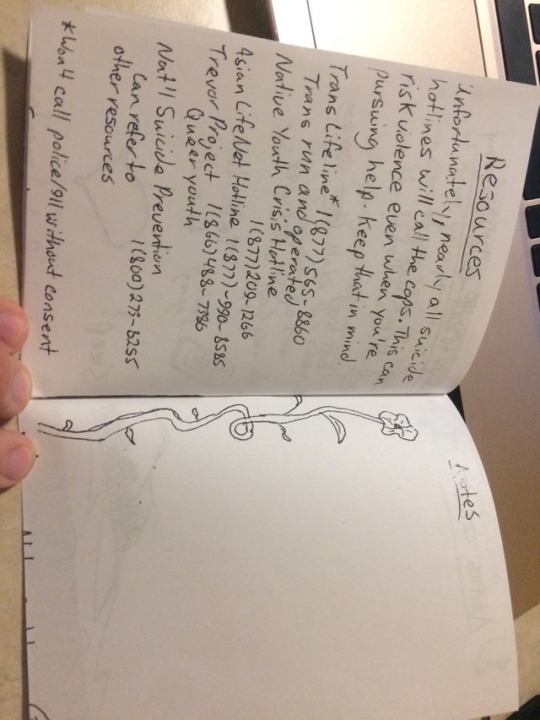 Resources
Unfortunately, nearly all suicide
hotlines will call the cops. This can
risk violence even when you're
pursuing help. Keep that in mind.
Trans Lifeline* 1(877)565-8860
Trans run and operated
Native Youth Crisis Hotline
1(877)209-1266
Asian LifeNet Hotline 1(877)-990-8585
Trevor Project 1(866)488-7386
Queer youth
Nat'l Suicide Prevention
1(800)273-8255
Can refer to
other resources
*Won't call police/911 without consent
Notes